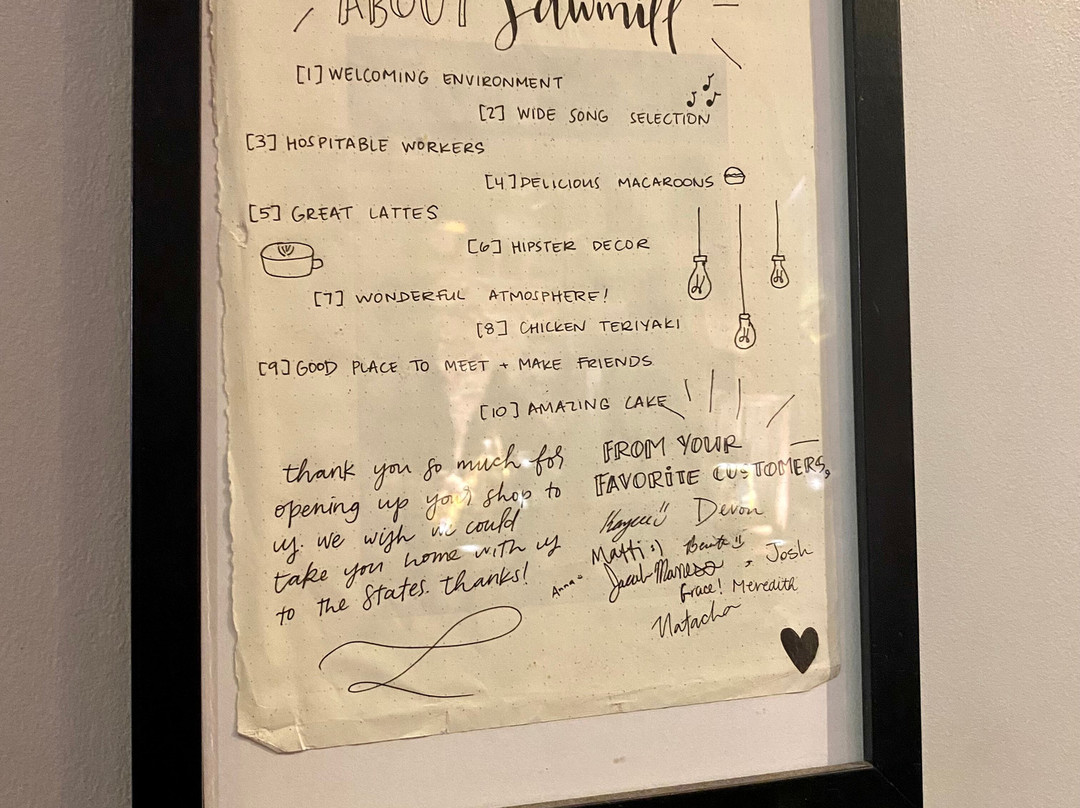 ABOUT Sawmill
[1] WELCOMING ENVIRONMENT
[2] WIDE SONG SELECTION
[3] HOSPITABLE WORKERS
[4] DELICIOUS MACAROONS
[5] GREAT LATTES
[6] HIPSTER DECOR
[7] WONDERFUL ATMOSPHERE!
[8] CHICKEN TERIYAKI
[9] GOOD PLACE TO MEET + MAKE FRIENDS
[10] AMAZING CAKE
thank you so much for
opening up your shop to
us. we wish we could
take you home with us
to the States. thanks!
FROM YOUR
FAVORITE CUSTOMERS,
Devon
Matti :)
Josh
Anna
Jacob
Grace! Meredith
Natacha